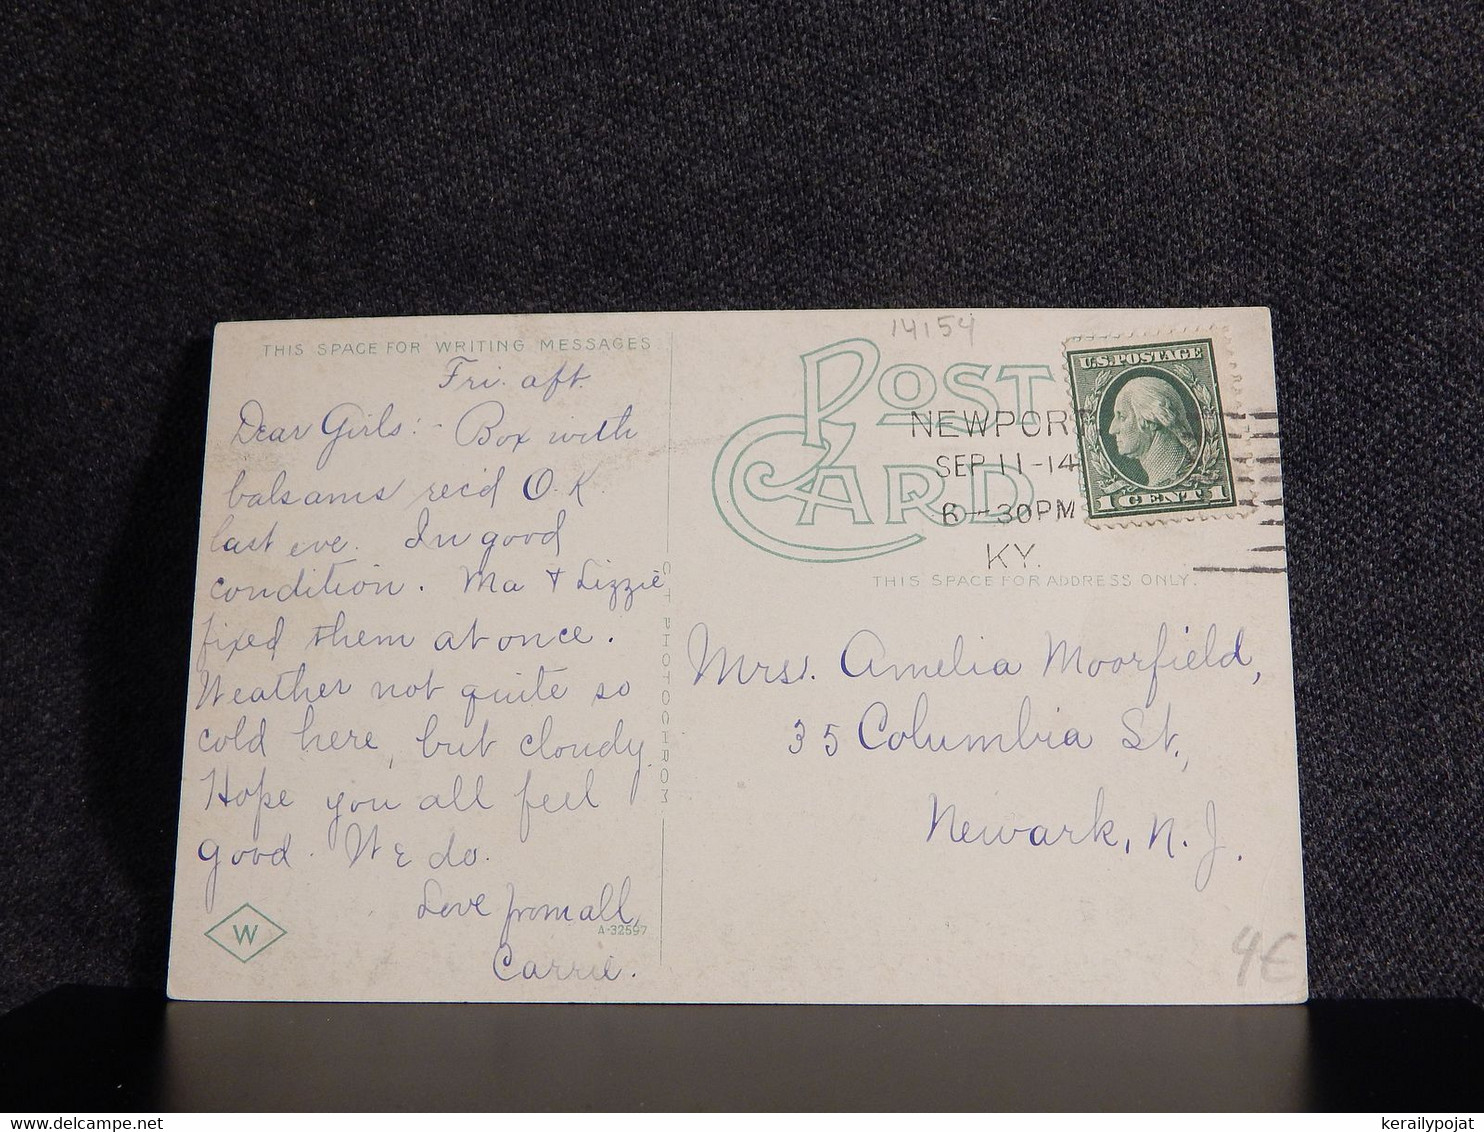 THIS SPACE FOR WRITING MESSAGES
Fri. aft.
Dear Girls:- Box with
balsams rec'd O.K.
last eve. In good
condition. Ma + Lizzie
fixed them at once.
Weather not quite so
cold here, but cloudy.
Hope you all feel
good. We do.
Love from all,
Carrie.
W
A-32597
C.T. PHOTOCHROM
14154
POST CARD
U.S. POSTAGE
1 CENT 1
NEWPOR
SEP 11-14
6-30PM
KY.
THIS SPACE FOR ADDRESS ONLY.
Mrs. Amelia Moorfield,
35 Columbia St.,
Newark, N.J.
4€
delcampe.net
kerailypojat